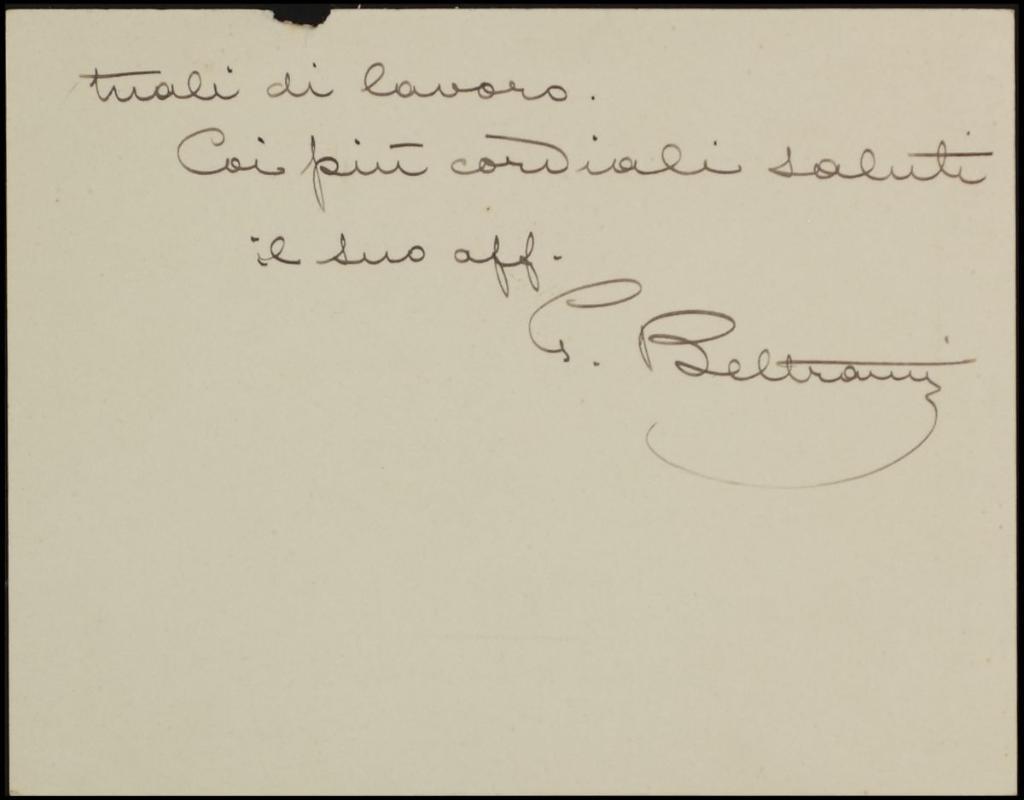 tuali di lavoro.
Coi più cordiali saluti
il suo aff.
G. Beltrami